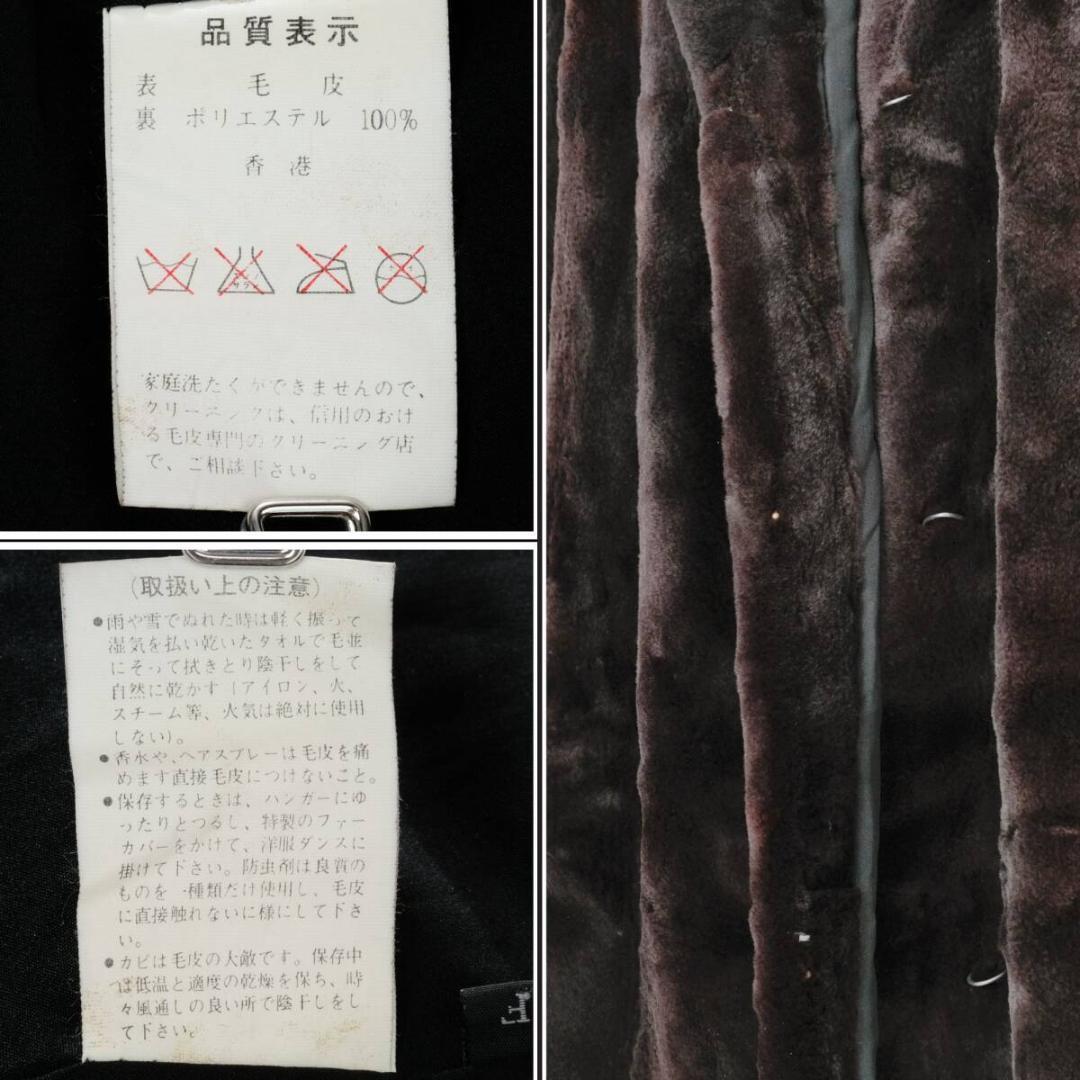 品質表示
表 毛 皮
裏 ポリエステル 100%
香 港
家庭洗たくができませんので、
クリーニングは、信用のおけ
る毛皮専門のクリーニング店
で、ご相談下さい。
(取扱い上の注意)
●雨や雪でぬれた時は軽く振って
湿気を払い乾いたタオルで毛並
にそって拭きとり陰干しをして
自然に乾かす(アイロン、火、
スチーム等、火気は絶対に使用
しない)。
●香水や、ヘアスプレーは毛皮を痛
めます直接毛皮につけないこと。
●保存するときは、ハンガーにゆ
ったりとつるし、特製のファー
カバーをかけて、洋服ダンスに
掛けて下さい。防虫剤は良質の
ものを一種類だけ使用し、毛皮
に直接触れないに様にして下さ
い。
●カビは毛皮の大敵です。保存中
は低温と適度の乾燥を保ち、時
々風通しの良い所で陰干しをし
て下さい。